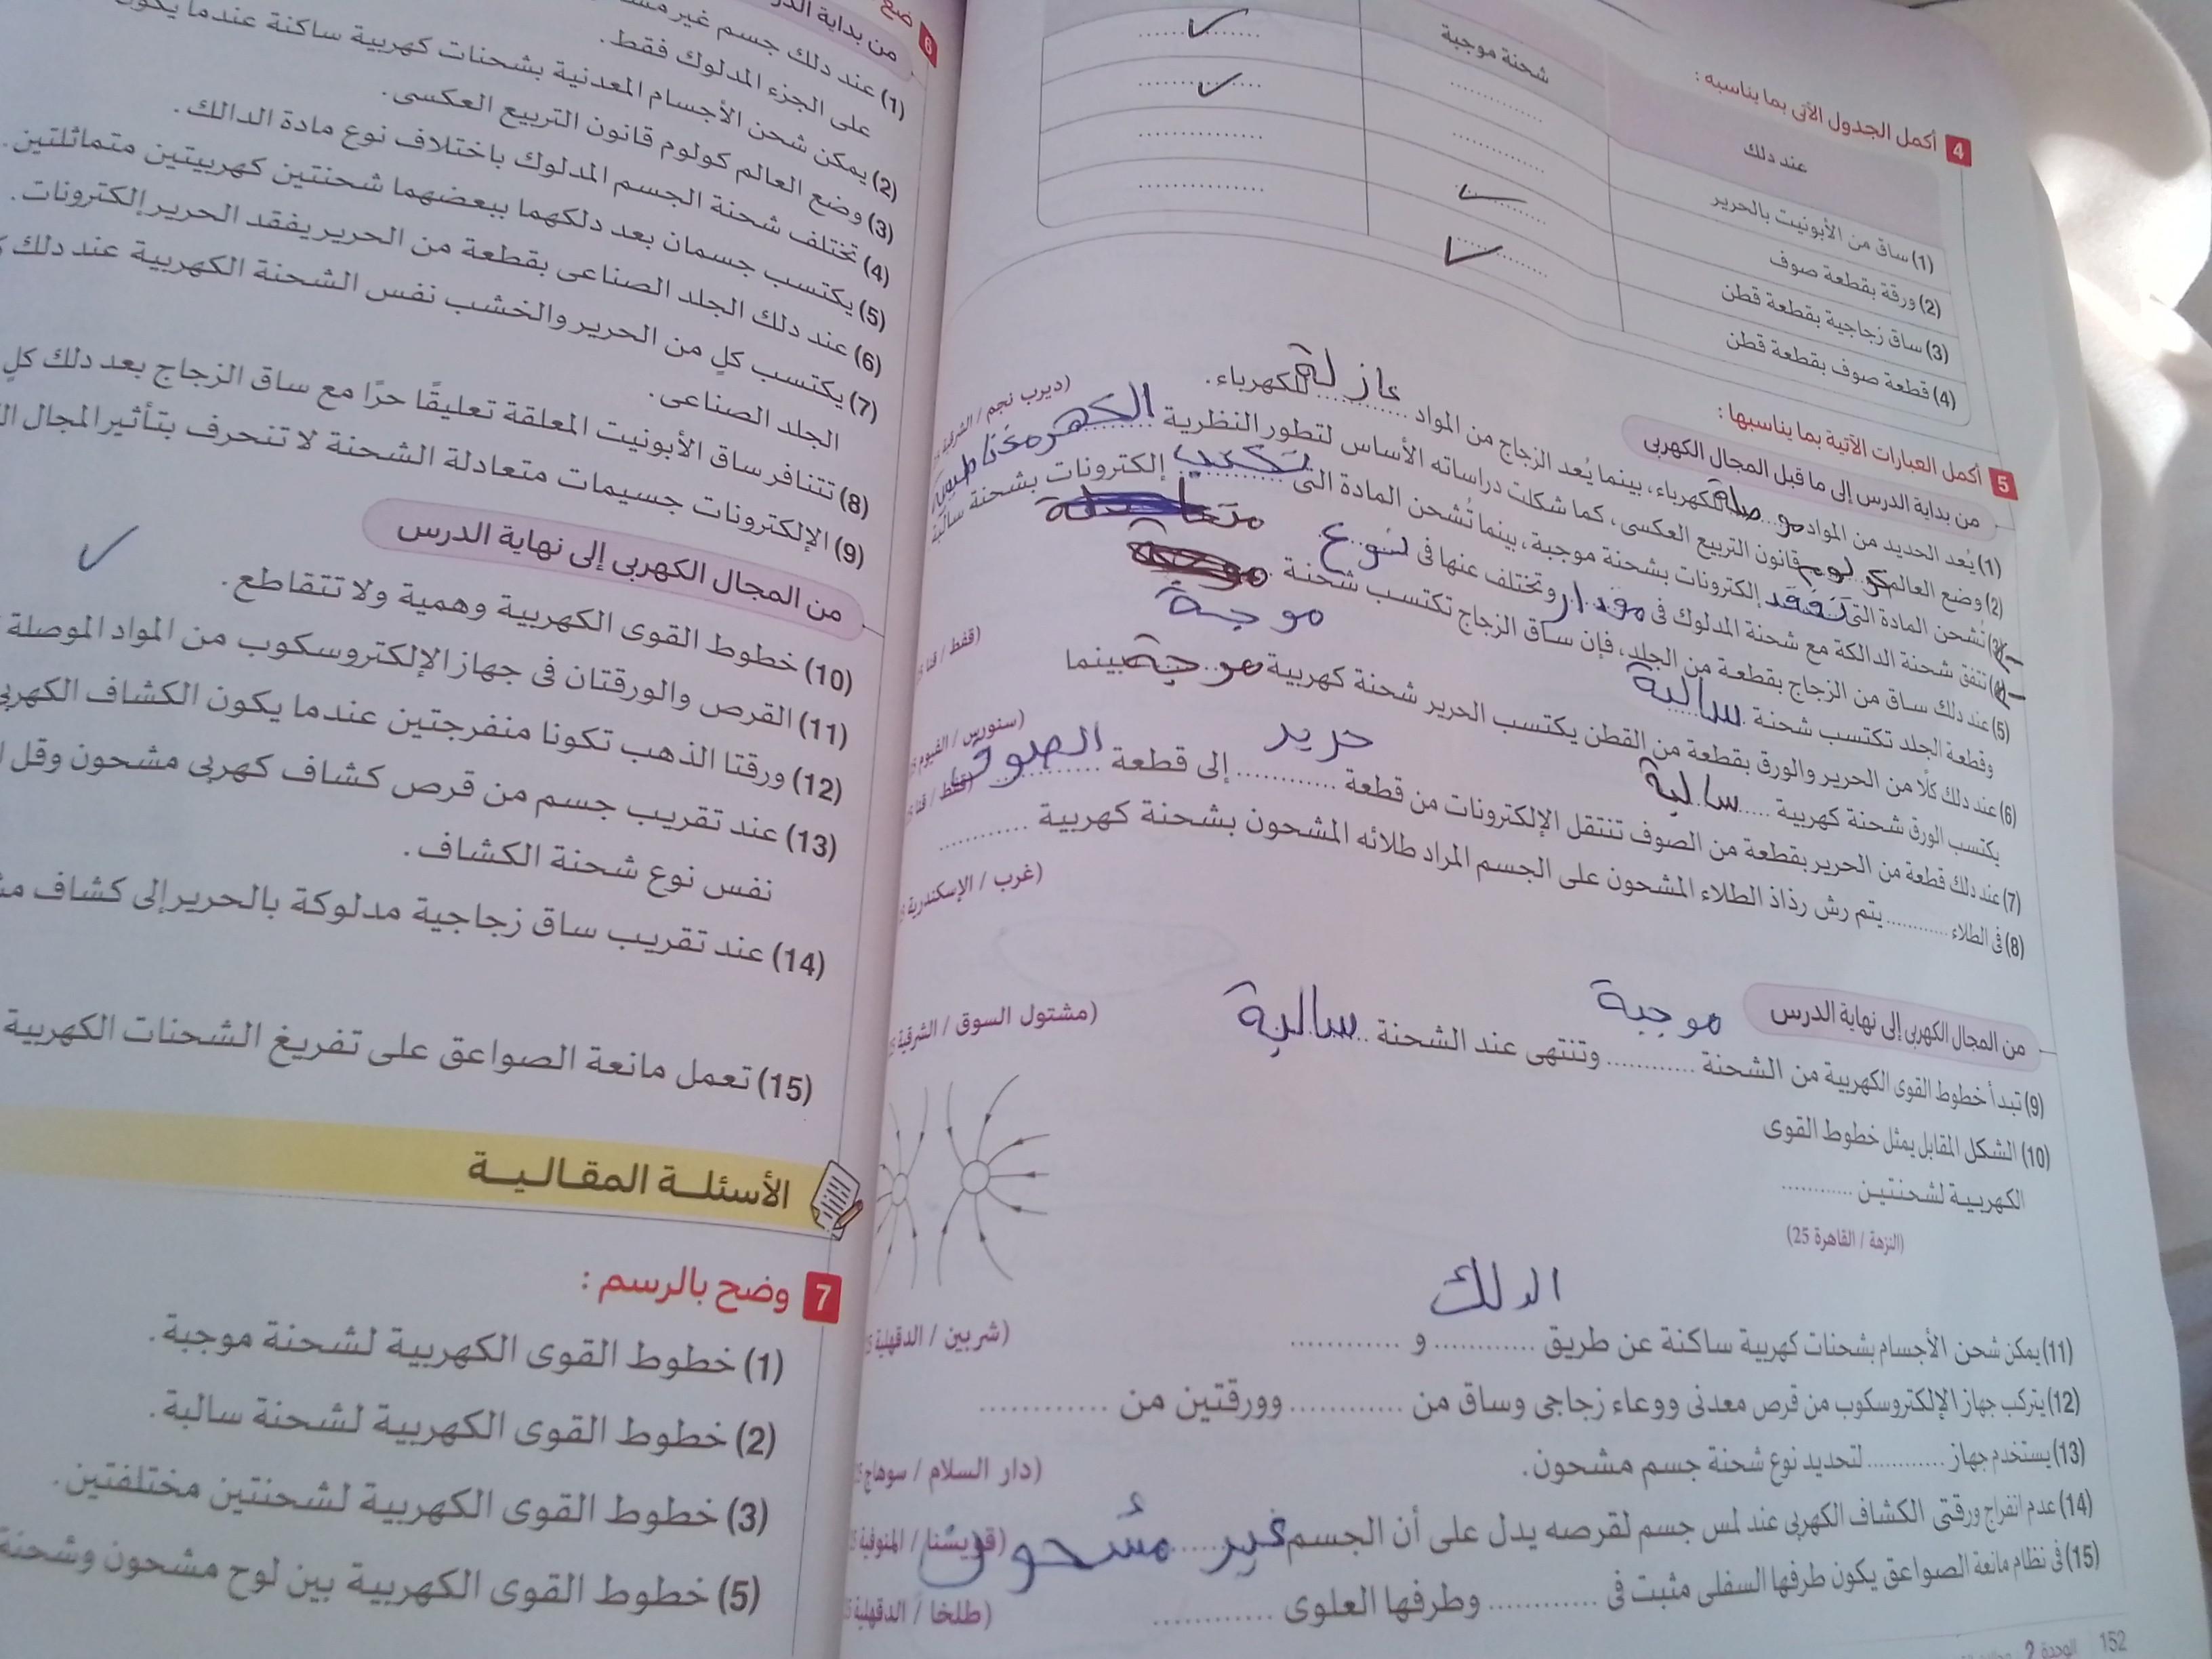 4 أكمل الجدول الآتى بما يناسبه :
عند دلك
شحنة موجبة
(1) ساق من الأبونيت بالحرير ............ ............ ✓
(2) ورقة بقطعة صوف ............ ............ ✓
(3) ساق زجاجية بقطعة قطن ............ ✓ ............
(4) قطعة صوف بقطعة قطن ............ ✓ ............
5 أكمل العبارات الآتية بما يناسبها :
من بداية الدرس إلى ما قبل المجال الكهربى
(1) يُعد الحديد من المواد موصلة للكهرباء، بينما يُعد الزجاج من المواد عازلة للكهرباء.
(ديرب نجم / الشرقية
(2) وضع العالم كولوم قانون التربيع العكسى، كما شكلت دراساته الأساس لتطور النظرية الكهرومغناطيسية
(3) تُشحن المادة التى تفقد إلكترونات بشحنة موجبة، بينما تُشحن المادة التى تكتسب إلكترونات بشحنة سالبة
(4) تتفق شحنة الدالكة مع شحنة المدلوك فى مقدار وتختلف عنها فى نوع
(5) عند دلك ساق من الزجاج بقطعة من الجلد، فإن ساق الزجاج تكتسب شحنة موجبة
وقطعة الجلد تكتسب شحنة سالبة
(قفط / قنا
(6) عند دلك كلًا من الحرير والورق بقطعة من القطن يكتسب الحرير شحنة كهربية موجبة بينما
يكتسب الورق شحنة كهربية سالبة
(سنورس / الفيوم
(7) عند دلك قطعة من الحرير بقطعة من الصوف تنتقل الإلكترونات من قطعة حرير إلى قطعة الصوف
(قفط / قنا
(8) فى الطلاء ............ يتم رش رذاذ الطلاء المشحون على الجسم المراد طلائه المشحون بشحنة كهربية ............
(غرب / الإسكندرية
من المجال الكهربى إلى نهاية الدرس
(9) تبدأ خطوط القوى الكهربية من الشحنة موجبة وتنتهى عند الشحنة سالبة
(مشتول السوق / الشرقية
(10) الشكل المقابل يمثل خطوط القوى
الكهربية لشحنتين ............
(النزهة / القاهرة 25)
(11) يمكن شحن الأجسام بشحنات كهربية ساكنة عن طريق الدلك و ............
(شربين / الدقهلية
(12) يتركب جهاز الإلكتروسكوب من قرص معدنى ووعاء زجاجى وساق من ............ وورقتين من ............
(13) يستخدم جهاز ............ لتحديد نوع شحنة جسم مشحون.
(دار السلام / سوهاج
(14) عدم انفراج ورقتى الكشاف الكهربى عند لمس جسم لقرصه يدل على أن الجسم غير مشحون
(قويسنا / المنوفية
(15) فى نظام مانعة الصواعق يكون طرفها السفلى مثبت فى ............ وطرفها العلوى ............
(طلخا / الدقهلية
152 الوحدة 2
6 ضع
من بداية الدر
(1) عند دلك جسم غير
على الجزء المدلوك فقط.
(2) يمكن شحن الأجسام المعدنية بشحنات كهربية ساكنة عندما
(3) وضع العالم كولوم قانون التربيع العكسى.
(4) تختلف شحنة الجسم المدلوك باختلاف نوع مادة الدالك.
(5) يكتسب جسمان بعد دلكهما ببعضهما شحنتين كهربيتين متماثلتين.
(6) عند دلك الجلد الصناعى بقطعة من الحرير يفقد الحرير إلكترونات.
(7) يكتسب كل من الحرير والخشب نفس الشحنة الكهربية عند دلك
الجلد الصناعى.
(8) تتنافر ساق الأبونيت المعلقة تعليقًا حرًا مع ساق الزجاج بعد دلك كل
(9) الإلكترونات جسيمات متعادلة الشحنة لا تنحرف بتأثير المجال
من المجال الكهربى إلى نهاية الدرس
(10) خطوط القوى الكهربية وهمية ولا تتقاطع. ✓
(11) القرص والورقتان فى جهاز الإلكتروسكوب من المواد الموصلة
(12) ورقتا الذهب تكونا منفرجتين عندما يكون الكشاف الكهربى
(13) عند تقريب جسم من قرص كشاف كهربى مشحون وقل
نفس نوع شحنة الكشاف.
(14) عند تقريب ساق زجاجية مدلوكة بالحرير إلى كشاف
(15) تعمل مانعة الصواعق على تفريغ الشحنات الكهربية
الأسئلة المقالية
7 وضح بالرسم :
(1) خطوط القوى الكهربية لشحنة موجبة.
(2) خطوط القوى الكهربية لشحنة سالبة.
(3) خطوط القوى الكهربية لشحنتين مختلفتين.
(5) خطوط القوى الكهربية بين لوح مشحون وشحنة